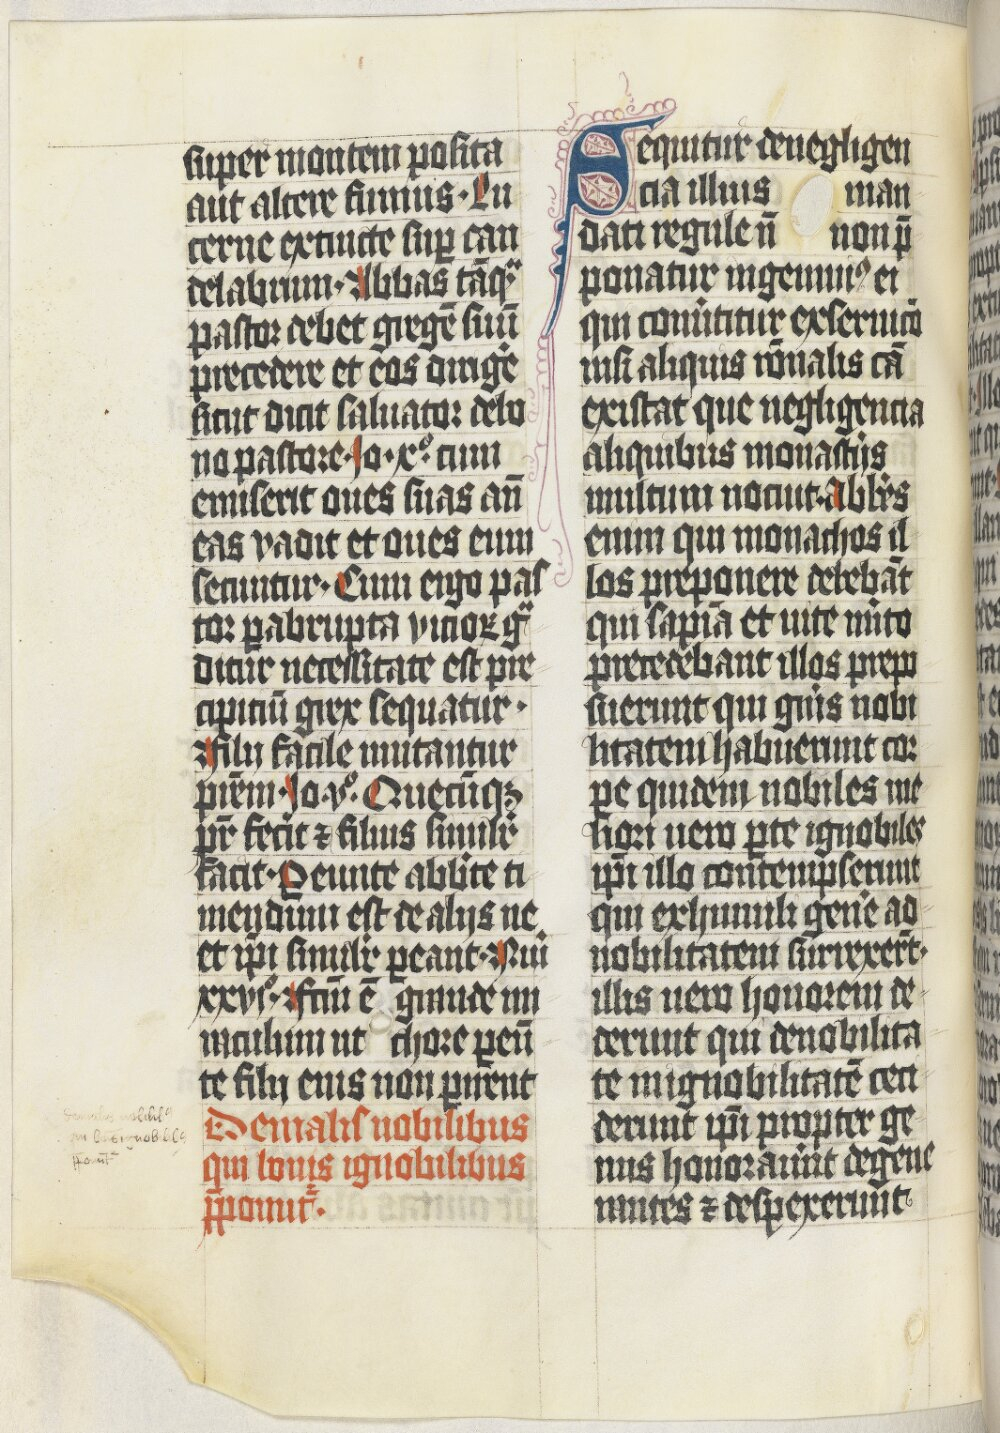 super montem posita
aut altere fumus. Lu
cerne extincte sup̄ can
delabrum. Abbas tāqᷓ
pastor debet gregē suū
precedere et eos dirig̾e
sicut dicit saluator debo
no pastore. Jo. xͦ. cum
emiserit oues suas an̄
eas vadit et oues eum
secuntur. Cum ergo pas
tor ꝑabrupta vicioꝝ gᷓ
ditur necessitate est pre
cipiciū grex sequatur.
Filij facile imitantur
prēm. Jo. vͦ. Quecūqꝫ
pr̄ fecit ⁊ filius simil̄r
facit. Peunte abb̄te ti
mendum est de alijs ne
et ip̄i simil̄r ꝑeant. Nūi
xxvjͦ. Fc̄m ē grande mi
raculum ut chore ꝑeū
te filij eius non ꝑirent
De malis nobilibus
qui bonis ignobilibus
p̄ponūtᷣ.
Sequitur de negligen
cia illius man
dati regule n̄ non p̄
ponatur ingenuus ei
qui conūtitur ex seruicō
nisi aliquis rōnalis cā
existat que negligencia
aliquibus monastijs
multum nocuit. Abb̄es
enim qui monachos il
los preponere debebāt
qui sapīa et uite mīto
precedebant illos prepo
suerunt qui gn̄is nobi
litatem habuerunt cor
pe quidem nobiles me
liori uero ꝑte ignobiles
ip̄i illo contempserunt
qui ex humili gen̄e ad
nobilitatem surrexer̄t.
illis uero honorem de
derunt qui de nobilita
te in ignobilitatē ceci
derunt ip̄i propter ge
nus honorauūt degene
rantes ⁊ despexerunt